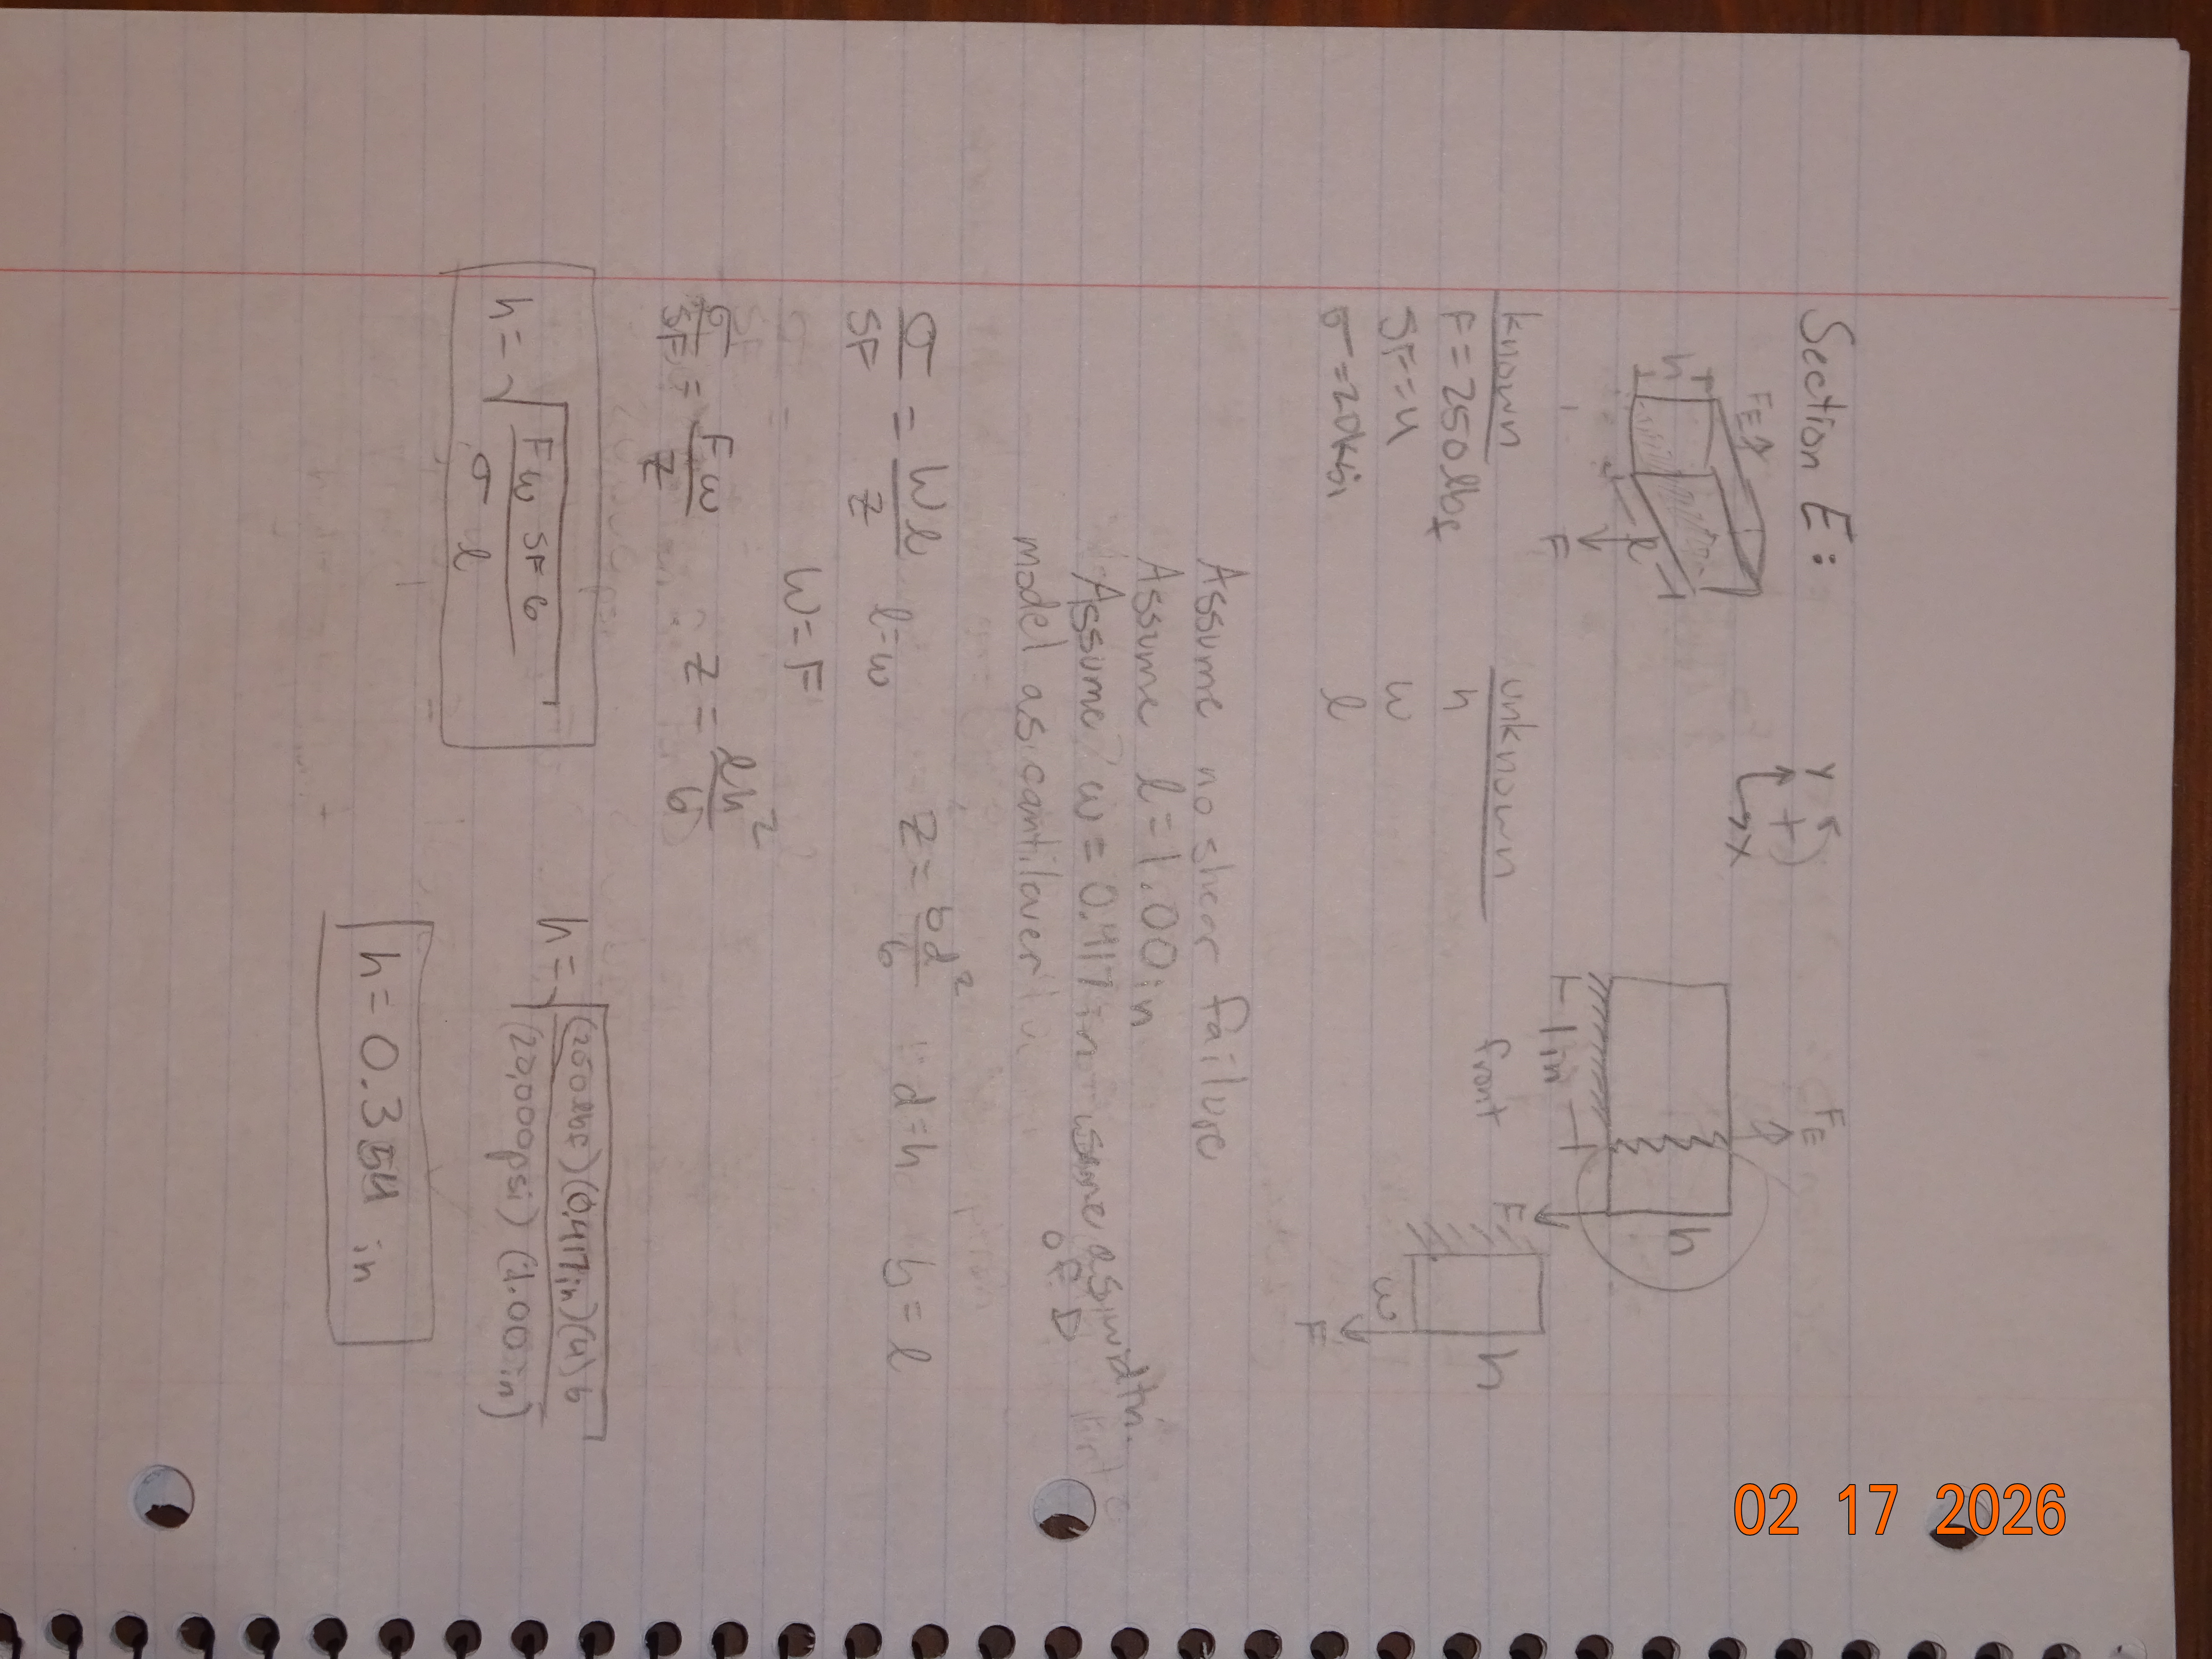 Section E:
FE
h
l
F
Y
+
x
FE
h
F
1in
front
h
w
F
known
unknown
F = 250 lbf
h
SF = 4
w
σ = 20ksi
l
Assume no shear failure
Assume l = 1.00in
Assume w = 0.417in same as width
of D
model as cantilaver
σ/SF = Wl/Z l=w Z = bd²/6 d=h b=l
W=F
σ/SF = Fw/Z Z = lh²/6
h = √(Fw SF 6/σ l)
h = √((250lbf)(0.417in)(4)6/(20,000psi)(1.00in))
h = 0.354 in
02 17 2026